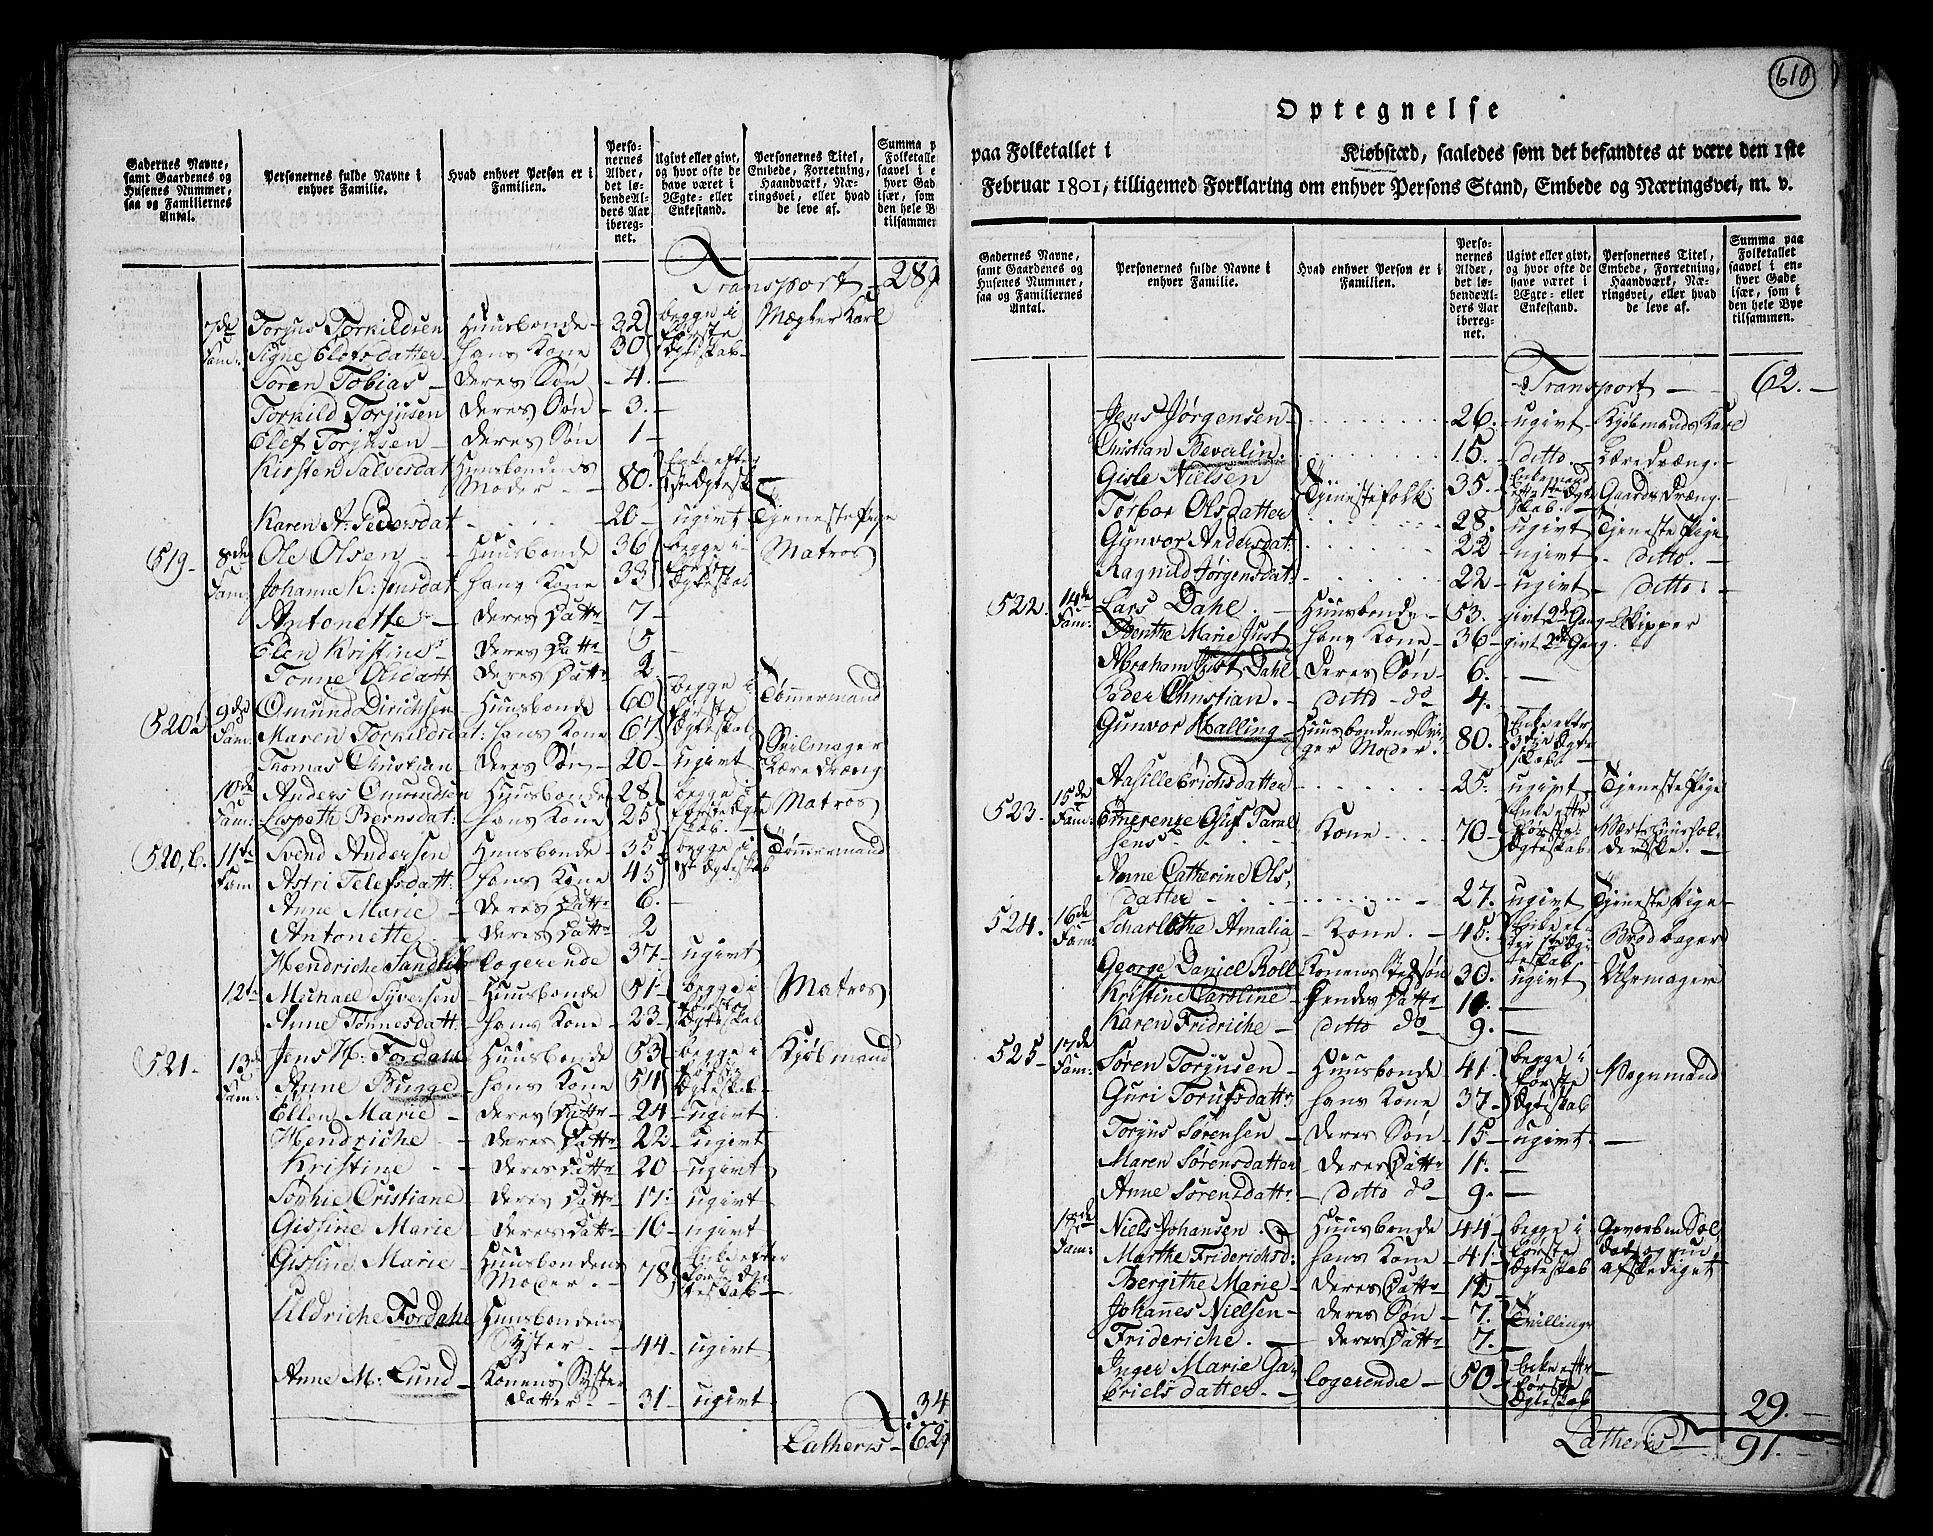 Gadernes Navne, samt Gaardenes og Husenes Nummer, saa og Familiernes Antal.
Personernes fulde Navne i enhver Familie.
Hvad enhver Person er i Familien.
Personernes Alder, det løbende Alders Aar iberegnet.
Ugivt eller givt, og hvor ofte de have været i Ægte- eller Enkestand.
Personernes Titel, Embede, Forretning, Haandværk, Næringsvei, eller hvad de leve af.
Transport - 28
7de Fam: Torjus Torkildsen Huusbonde - 32 begge i første Ægteskab Mægler Karl
Signe Elefsdatter hans Kone 30
Søren Tobias - deres Søn - 4. -
Torkild Torjusen deres Søn - 3. -
Elef Torjusen - deres Søn 1 -
Kirsten Salvesdat Huusbondens Moder - 80. Enke efter 1ste Ægtesk -
Karen A: Pedersdat - 20 - ugivt Tjeneste Pige
519 - 8de Fam: Ole Olsen - Huusbonde 36 begge i første Ægteskab Matros
Johanne K: Jensdat hans Kone 33
Antonette - deres Datr 7 -
Elen Kristine - deres Datr 5
Tonne Olsdatt deres Datr 2
520 a 9de Fam: Omund Dirichsen Huusbonde 60 begge i første Ægteskab Tømmermand
Maren Torkildsdat: hans Kone 67
Thomas Christian - deres Søn - 20 - ugivt Seilmager Læredræng
10de Fam: Anders Omundsen Huusbonde 28 begge i første Ægteskab. - Matros
Lispeth Bernsdat: hans Kone 25
520, b. 11te Fam Svend Andersen Huusbonde - 35 begge i 1st Ægteskab Tømmermand
Astri Telefsdatt: hans Kone 45
Anne Marie - deres Datr 6. -
Antonette - deres Datr 2
Hendriche Sandbek logerende 37 - ugivt
12te Michael Syversen - Huusbonde 51 - begge i første Ægteskab Matros
Anne Tønnesdatt. - hans Kone - 23 -
521 - 13de Fam: Jens H: Fordahl Huusbonde 53 begge i første Ægteskab - Kjøbmand
Anne Bugge - hans Kone 54
Ellen Marie - deres Datr - 24 - ugivt
Hendriche - deres Datr - 22 - ugivt
Kristine - - deres datr 20 - ugivt
Sophie Cristiane deres Datr - 17 - ugivt -
Gisline Marie - deres Datr - 16 - ugivt
Gisline Marie - Huusbondens Moder. - 78 Enke efter første Ægteskab -
Uldriche Fordahl Huusbondens Syster - - 44 - ugivt
Anne M: Lund - Konens Syster datter - 31 - ugivt
34
Latheris - 62
610
Optegnelse
paa Folketallet i Kiøbstæd, saaledes som det befandtes at være den 1ste
Februar 1801, tilligemed Forklaring om enhver Persons Stand, Embede og Næringsvei, m. v.
Gadernes Navne, samt Gaardenes og Husenes Nummer, saa og Familiernes Antal.
Personernes fulde Navne i enhver Familie.
Hvad enhver Person er i Familien.
Personernes Alder, det løbende Alders Aar iberegnet.
Ugivt eller givt, og hvor ofte de have været i Ægte- eller Enkestand.
Personernes Titel, Embede, Forretning, Haandværk, Næringsvei, eller hvad de leve af.
Summa paa Folketallet saavel i enhver Gade især, som i den hele Bye tilsammen.
Transport - - 62. -
Jens Jørgensen 26. ugivt - Kjøbmands Karl
Christian Beverlin. 15. - ditto - Læredræng. -
Gisle Nielsen Tjenestefolk 35. Enkemand efter 1te Ægteskab. - Gaards Dræng. -
Torbor Olsdatter 28. ugivt Tjeneste Pige
Gunvor Andersdat: 22 - ugivt - ditto. -
Ragnild Jørgensdat: 22 - ugivt - ditto:
522. 14de Fam: Lars Dahl. - Huusbonde - 53. givt 2de Gang - Skipper
Benthe Marie Just hans Kone - 36 - givt 2de Gang.
Abraham Just Dahl deres Søn - 6. -
Peder Christian. - ditto - do 4. -
Gunvor Malling - Huusbondens Sviger Moder. 80. - Enke efter 3die Ægteskab -
Aasille Erichsdatter 25. ugivt - Tjeneste Pige
523. 15de Fam: Emerentze Oluf Taralsens Kone - 70 - Enke eftr første Ægteskab. Værtshuusholderske. -
Anne Catherine Olsdatter 27. ugivt Tjeneste Pige -
524. 16de Fam: Scharlotthe Amalia Kone. - 45. Enke efter 1ste Ægteskab Brødbager
George Daniel Roll Konens Stedsøn 30. ugivt - Uhrmager
Kristine Caroline - hendes Datr 10. -
Karen Fridriche - ditto do - 9. -
525 - 17de Fam: Søren Torjusen - Huusbonde - 41. begge i første Ægteskab - Vognmand
Guri Torufsdatt: hans Kone - 37 -
Torjus Sørensen - deres Søn - 15 - ugivt -
Maren Sørensdatter deres Datr 11. -
Anne Sørensdatt: - ditto do - 9. -
18de Fam: Niels Johansen. Huusbonde 44 - begge i første Ægteskab Geworben Soldat og nu afskediget
Marthe Friderichsd: hans Kone - 41 -
Bergithe Marie - deres Datr - 12
Johannes Nielsen - deres Søn - 7. Tvillinge
Frideriche. - deres Datr 7. -
Inger Marie Gabrielsdatter. - logerende - 50 - Enke eftr første Ægteskab
29. -
Latheris 91. -